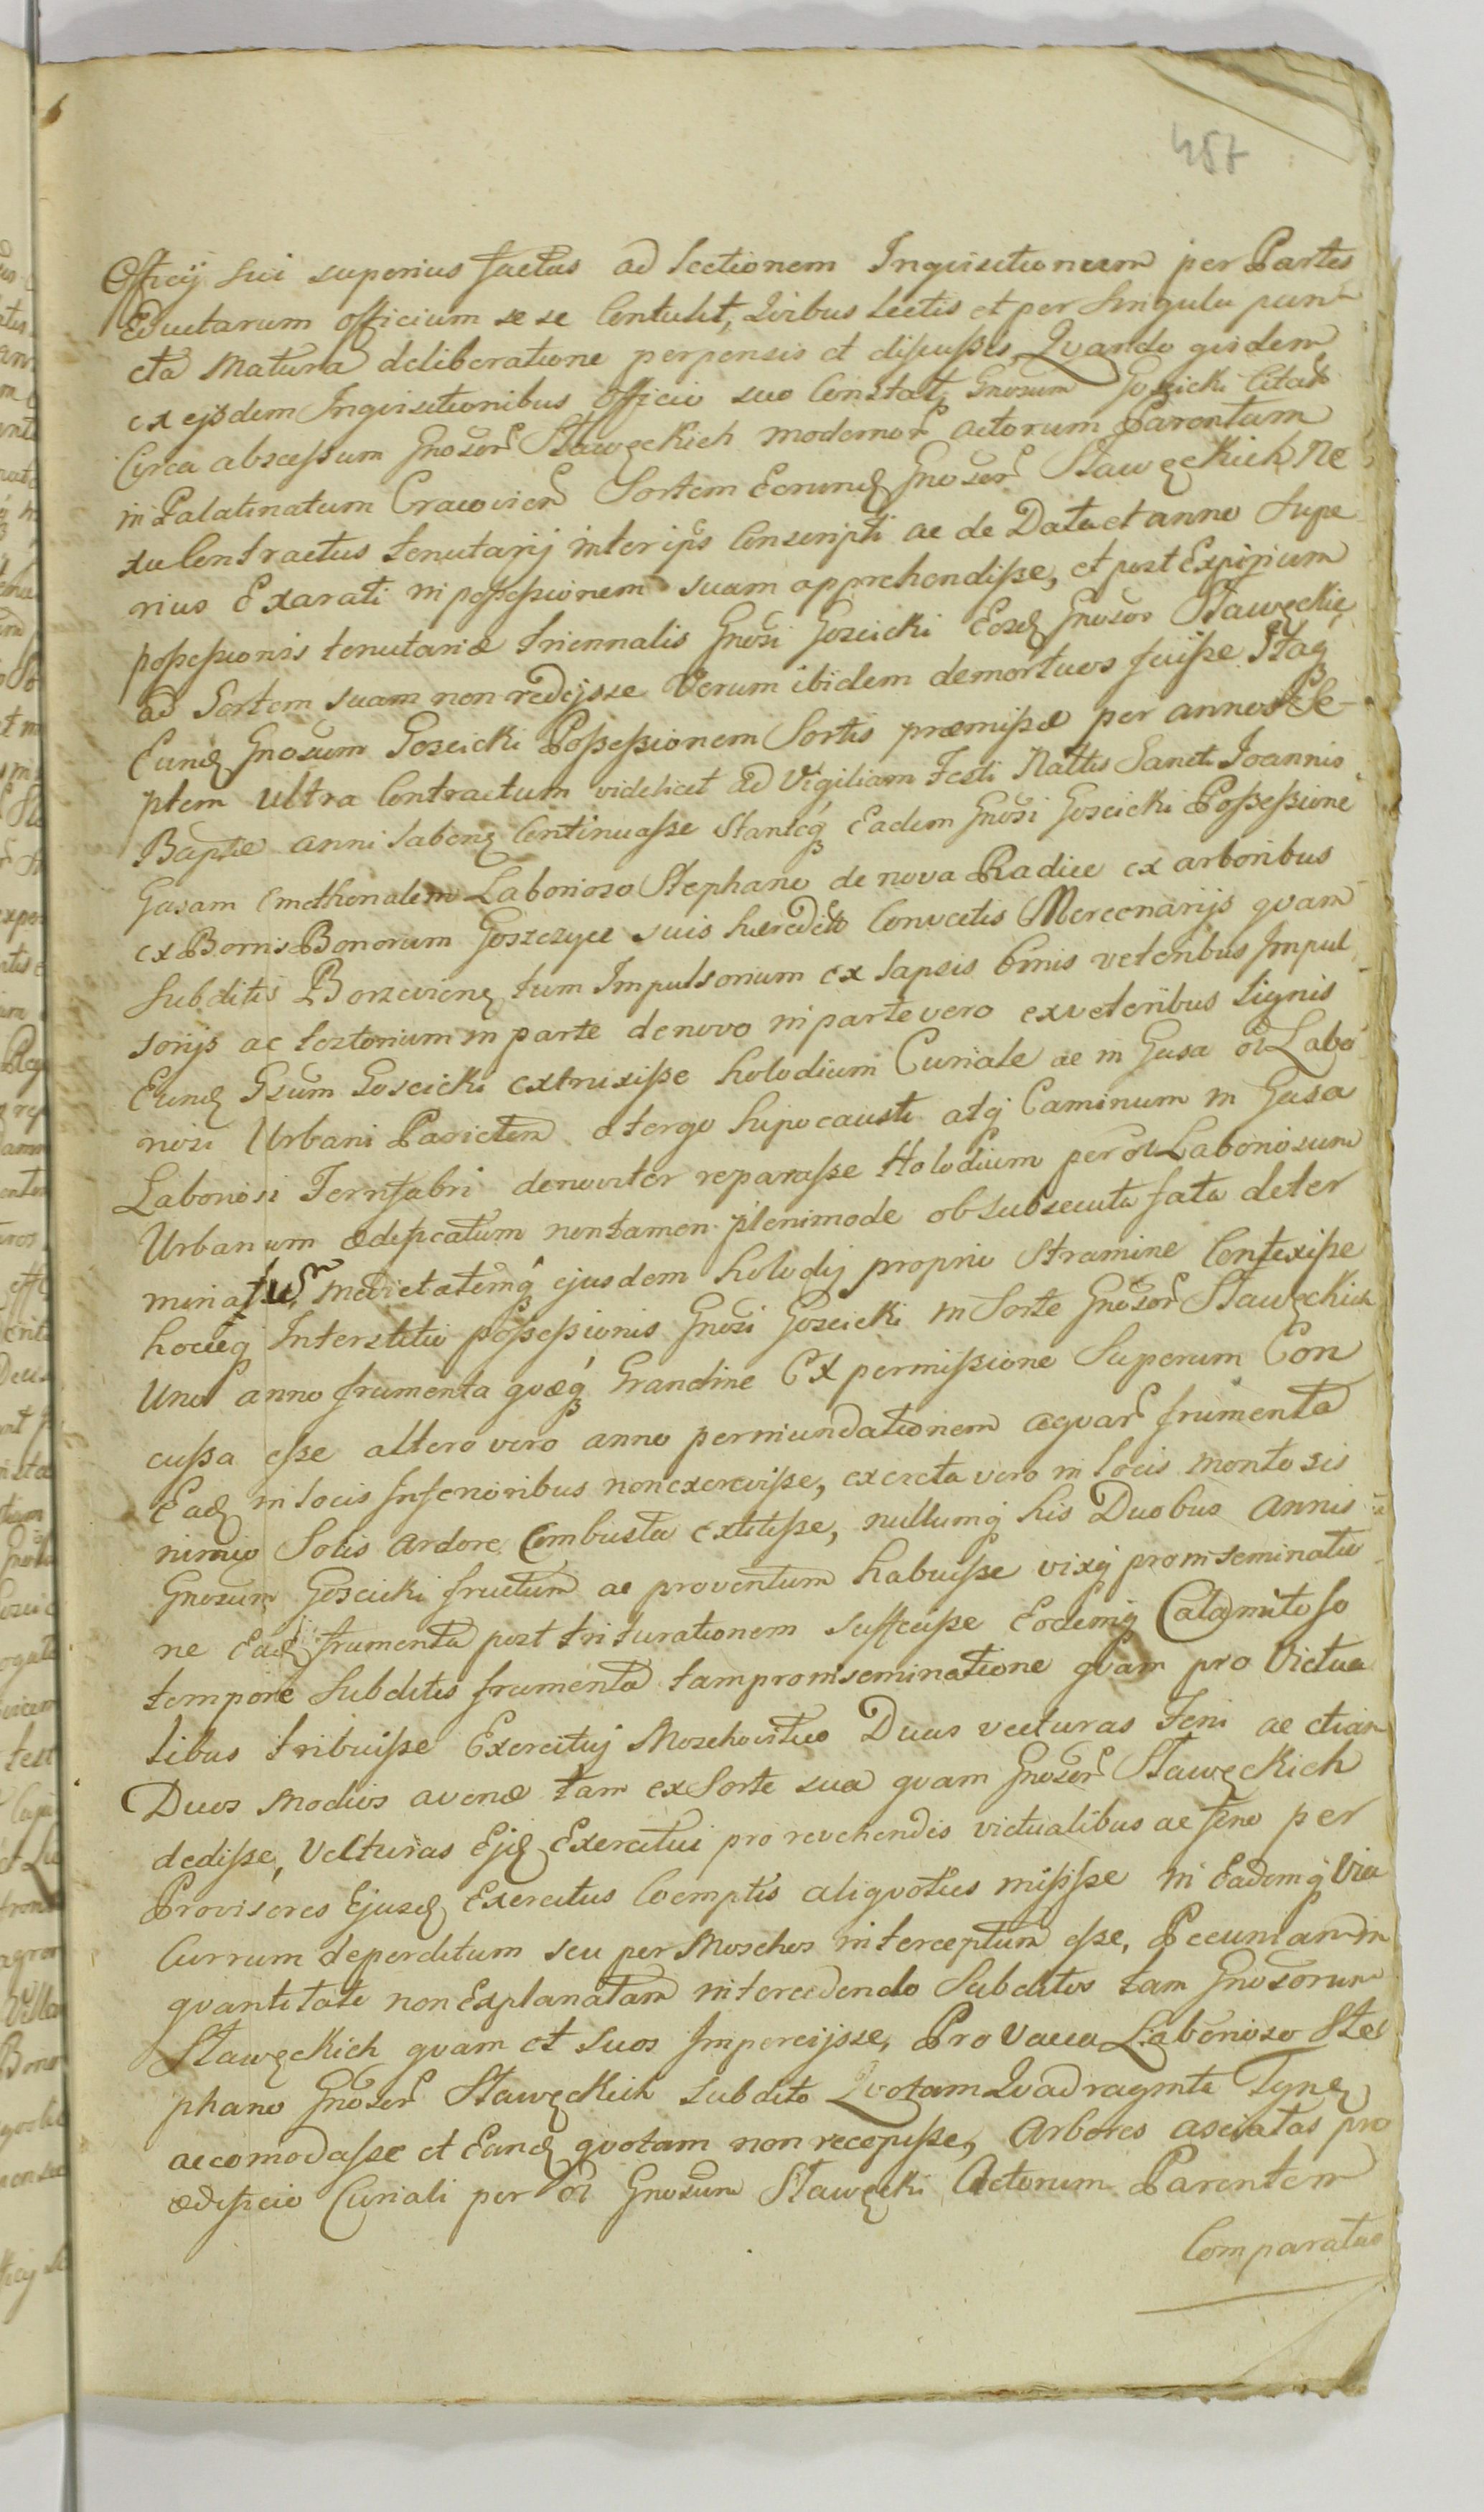 457
Officij sui superius factas ad lectionem Inquisitionum per Partes
Eductarum officium se se Contulit, Quibus lectis et per singula pun¬
cta Matura deliberatione perpensis et discussis, Quando quidem
ex ejsdem Inquisitionibus Officio suo Constat, Gnosum Goscicki Citatũ
Circa abscessum Gnosor Stawęckich modernor actorum Parentum
in Palatinatum Cracovien Sortem Eorund Gnosor Stawęckich Ne
xu Contractus tenutarij inter ipsos Conscripti ac de Data et anno supe
rius Exarati in possessionem suam apprehendisse, et post Expirium
possessionis tenutariæ triennalis Gnosi Goscicki Eosd Gnosos Stawęckie
ad Sortem suam non redijsse Verum ibidem demortuos fuisse Itaq
Eund Gnosum Goscicki Possessionem Sortis præmissæ per annos Se¬
ptem ultra Contractum videlicet ad Vigiliam Festi Nattis Sancti Joannis
Baptæ anni labend Continuasse Stanteq Eadem Gnosi Goscicki Possessione
Gasam Cmethonalem Laborioso Stephano de nova Radice ex arboribus
ex Borris Bonorum Goszczyce suis hæreditũ Convectis Mercenarijs quam
subditis Borzevicens tum Impulsorium ex lapsis binis veteribus Impul
sorijs ac textorium in parte de novo in parte vero ex veteribus lignis
Eund Gsum Goscicki extruxisse holodium Curiale ac in Gasa ol Labo
riosi Urbani Parietem a tergo hipocausti atq Caminum in Gasa
Laboriosi Ferrifabri denoviter reparasse Holodium per ol Laboriosum
Urbanum ædificatum non tamen plenimode ob subsecuta fata deter
minatum, medietatemq ejusdem holodij proprio stramine Contexisse
hocceq Interstitio possessionis Gnosi Goscicki in Sorte Gnosor Stawęckich
Uno anno frumenta quæq Grandine Ex permissione Superum Con
cussa esse altero vero anno per inundationem aquar frumenta
Ead in locis inferioribus non excrevisse, excreta vero in locis montosis
nimio Solis ardore Combusta extitisse, nullumq his Duobus annis
Gnosum Goscicki fructum ac proventum habuisse vixq pro inseminatio
ne Ead frumenta post triturationem suffecisse Eodemq Calamitoso
tempore subditis frumenta tam pro inseminatione quam pro victua
libus tribuisse Exercitui Moschovitico Duas vecturas Feni ac etiam
Duos modios avenæ tam ex Sorte sua quam Gnosor Stawęckich
dedisse, Vecturas Ejd Exercitui pro revehendis victualibus ac feno per
Provisores Ejusd Exercitus Coemptis aliquoties misisse in Eademq via
Currum deperditum seu per Moschos interceptum esse, Pecuniam in
quantitate non Explanatam intercedendo Subditos tam Gnosorum
Stawęckich quam et suos Impercijsse, Pro Vacca Laborioso Ste
phano Gnosor Stawęckich subdito Quotam Quadraginta Tynf
accomodasse et Eand quotam non recepisse, Arbores asciatas pro
ædificio Curiali per ol Gnosum Stawęcki Actorum Parentem
Comparatas